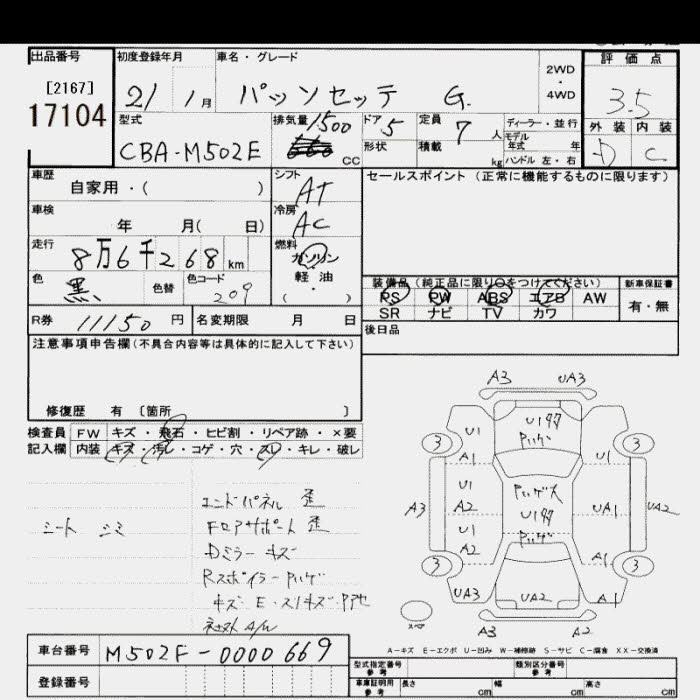 出品番号 初度登録年月 車名・グレード 評価点
[2167] 21 1月 パッソセッテ G. 2WD・4WD 3.5
17104
型式 排気量 1500 cc ドア 5 定員 7人 ディーラー・並行 外装 内装
CBA-M502E 形状 積載 kg モデル年式 年 D C
ハンドル 左・右
車歴 自家用・( ) シフト AT セールスポイント(正常に機能するものに限ります)
車検 年 月( 日) 冷房 AC
走行 8万6千268km 燃料 ガソリン・軽・油 ( )
色 黒 色替 色コード 209 装備品(純正品に限り○をつけてください) 新車保証書
PS PW ABS エアB AW 有・無
SR ナビ TV カワ
R券 11150円 名変期限 月 日 後日品
注意事項申告欄(不具合内容等は具体的に記入して下さい)
修復歴 有 [箇所 ]
検査員 FW キズ・飛石・ヒビ割・リペア跡・×要
記入欄 内装 キズ・汚レ・コゲ・穴・スレ・キレ・破レ
エンドパネル 歪
シート シミ フロアサポート 歪
Dミラーキズ
Rスポイラー
キズ・E・スリキズ・
A3 UA3
U1
3 U1 U1 3
A1
A3 U1 A2 U1 UA1 UA2
U1 A2 A1
3 3
UA3 UA2 A1
A3 A2
A-キズ E-エクボ U-凹み W-補修跡 S-サビ C-腐食 XX-交換済
車台番号 M502F-0000669
型式指定番号 参考 類別区分番号 参考
登録番号 車庫証明用 参考 長さ cm 幅 cm 高さ cm